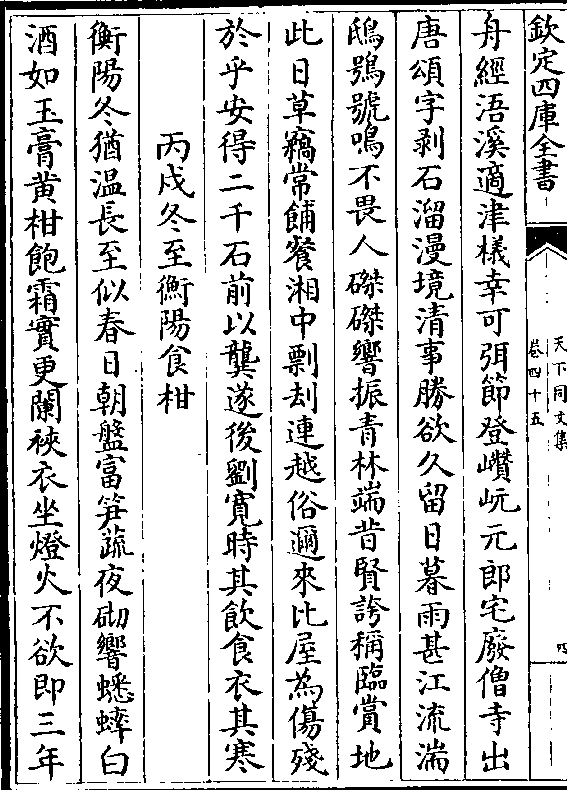 欽定四庫全書
天下同文集
卷四十五
四
舟經浯溪適津檥幸可弭節登巑岏元郎宅廢僧寺出
唐頌字剥石溜漫境清事勝欲久留日暮雨甚江流湍
鴟鴞號鳴不畏人磔磔響振青林端昔賢誇稱臨賞地
此日草竊常餔餐湘中剽刦連越俗邇來比屋為傷殘
於乎安得二千石前以龔遂後劉寛時其飲食衣其寒
丙戍冬至衡陽食柑
衡陽冬猶温長至似春日朝盤富笋蔬夜砌響蟋蟀白
酒如玉膏黄柑飽霜實更闌裌衣坐燈火不欲即三年